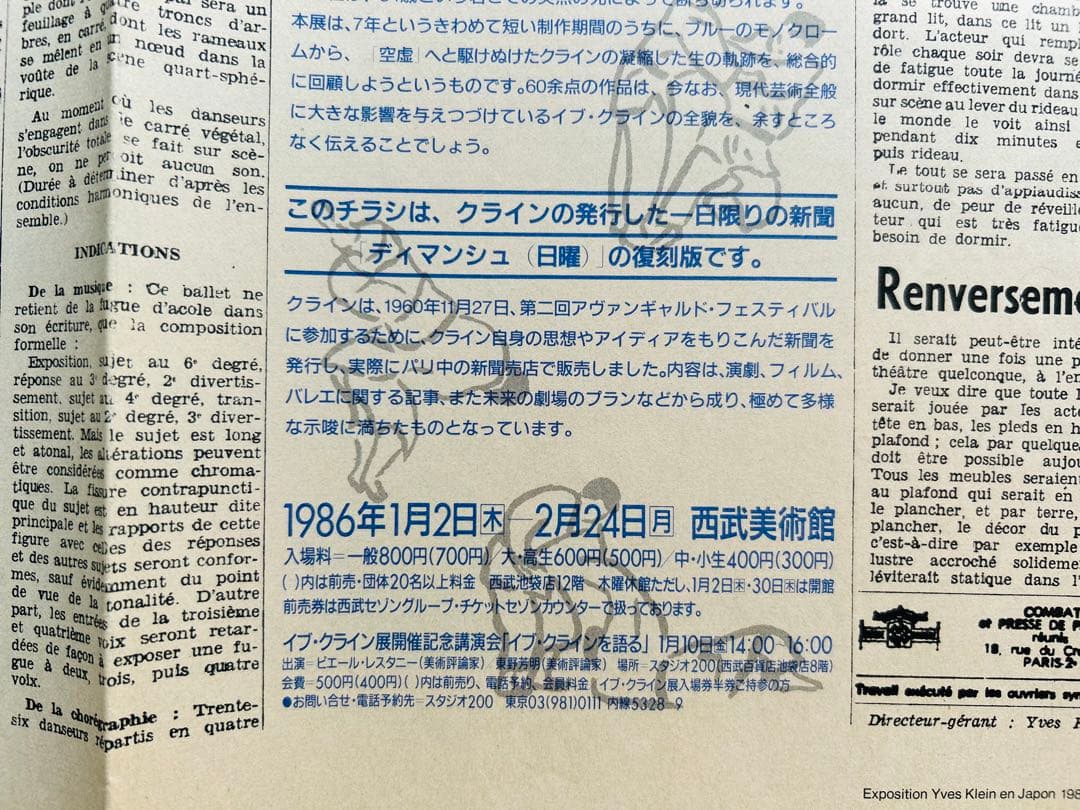 ple dont
feuillage à
bres, en carré,
se mêlent en
voûte de la
rique.
sera un
troncs d'ar-
dont les rameaux
un nœud dans la
scène quart-sphé-
Au moment où les danseurs
s'engagent dans le carré végétal,
l'obscurité totale se fait sur scè-
ne, on ne per oit aucun son.
(Durée à déterminer d'après les
conditions harmoniques de l'en-
semble.)
INDICATIONS
De la musique : Ce ballet ne
retient de la fugue d'acole dans
son écriture, que la composition
formelle :
Exposition, sujet au 6e degré,
réponse au 3e degré, 2e divertis-
sement, sujet au 4e degré, tran-
sition, sujet au 2e degré, 3e diver-
tissement. Mais le sujet est long
et atonal, les altérations peuvent
être considérées comme chroma-
tiques. La fissure contrapuncti-
que du sujet est en hauteur dite
principale et les rapports de cette
figure avec celles des réponses
et des autres sujets seront confor-
mes, sauf évidemment du point
de vue de la tonalité. D'autre
part, les entrées de la troisième
et quatrième voix seront retar-
dées de façon à exposer une fu-
gue à deux, trois, puis quatre
voix.
De la chorégraphie : Trente-
six danseurs répartis en quatre
本展は、7年というきわめて短い制作期間のうちに、ブルーのモノクロー
ムから、「空虚」へと駆けぬけたクラインの凝縮した生の軌跡を、総合的
に回顧しようというものです。60余点の作品は、今なお、現代芸術全般
に大きな影響を与えつづけているイブ・クラインの全貌を、余すところ
なく伝えることでしょう。
このチラシは、クラインの発行した一日限りの新聞
「ディマンシュ（日曜）」の復刻版です。
クラインは、1960年11月27日、第二回アヴァンギャルド・フェスティバル
に参加するために、クライン自身の思想やアイディアをもりこんだ新聞を
発行し、実際にパリ中の新聞売店で販売しました。内容は、演劇、フィルム、
バレエに関する記事、また未来の劇場のプランなどから成り、極めて多様
な示唆に満ちたものとなっています。
1986年1月2日木—2月24日月 西武美術館
入場料＝一般800円(700円)／大・高生600円(500円)／中・小生400円(300円)
( )内は前売・団体20名以上料金 西武池袋店12階・木曜休館ただし、1月2日木・30日木は開館
前売券は西武セゾングループ・チケットセゾンカウンターで扱っております。
イブ・クライン展開催記念講演会「イブ・クラインを語る」 1月10日金14:00–16:00
出演＝ピエール・レスタニー(美術評論家) 東野芳明(美術評論家) 場所＝スタジオ200(西武百貨店池袋店8階)
会費＝500円(400円)( )内は前売り、電話予約、会員料金 イブ・クライン展入場券半券ご持参の方
●お問い合せ・電話予約先＝スタジオ200 東京03(981)0111 内線5328–9
la se trouve une chamb
grand lit, dans ce lit un
dort. L'acteur qui remp
rôle chaque soir devra se
de fatigue toute la journé
dormir effectivement dans
sur scène au lever du rideau
le monde le voit ainsi
pendant dix minutes e
puis rideau.
Le tout se sera passé en
et surtout pas d'applaudiss
aucun, de peur de réveille
teur qui est très fatigué
besoin de dormir.
Renverseme
Il serait peut-être inté
de donner une fois une p
théâtre quelconque, à l'en
Je veux dire que toute l
serait jouée par les acte
tête en bas, les pieds en h
plafond ; cela par quelque
doit être possible aujou
Tous les meubles seraien
au plafond qui serait en
le plancher, et par terre,
plancher, le décor du p
c'est-à-dire par exemple
lustre accroché solideme
léviterait statique dans l'
COMBAT
et PRESSE DE P
réunis
18, rue du Cr
PARIS-2
Travail exécuté par les ouvriers syn
Directeur-gérant : Yves
Exposition Yves Klein en Japon 198